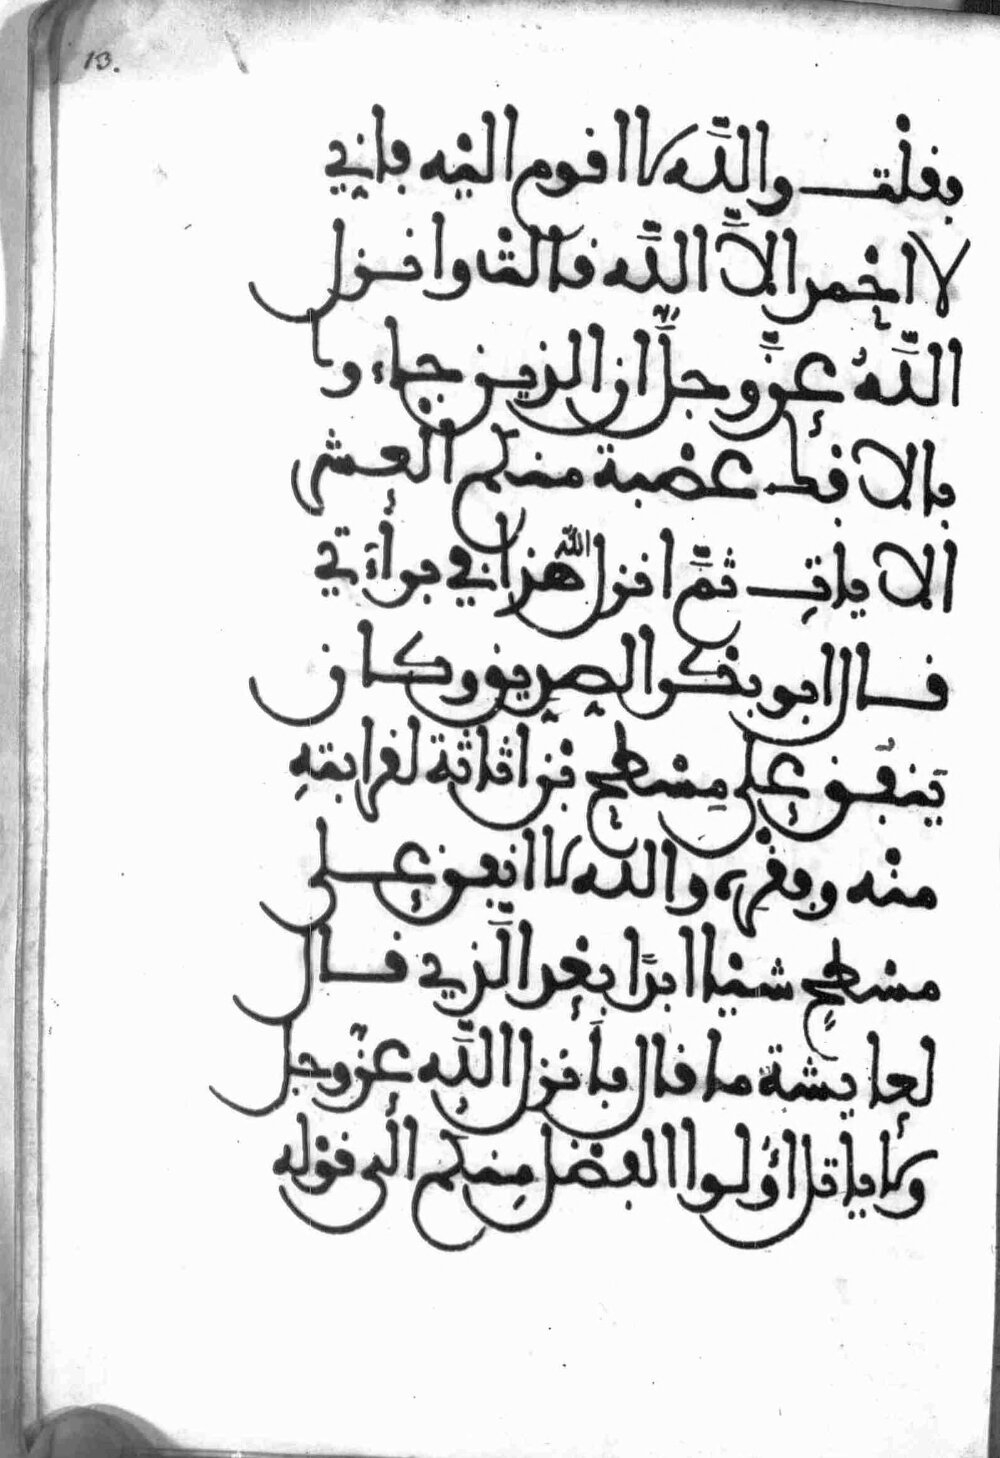 13.
فقلت والله لا اقوم اليه فاني
لا احمد الا الله قالت وانزل
الله عز وجل ان الذين جاءوا
بالافك عصبة منكم العشر
الايات ثم انزل الله هذا في براءتي
قال ابو بكر الصديق وكان
ينفق على مسطح بن اثاثة لقرابته
منه وفقره والله لا انفق على
مسطح شيئا ابدا بعد الذي قال
لعايشة ما قال فانزل الله عز وجل
ولا ياتل اولوا الفضل منكم الى قوله